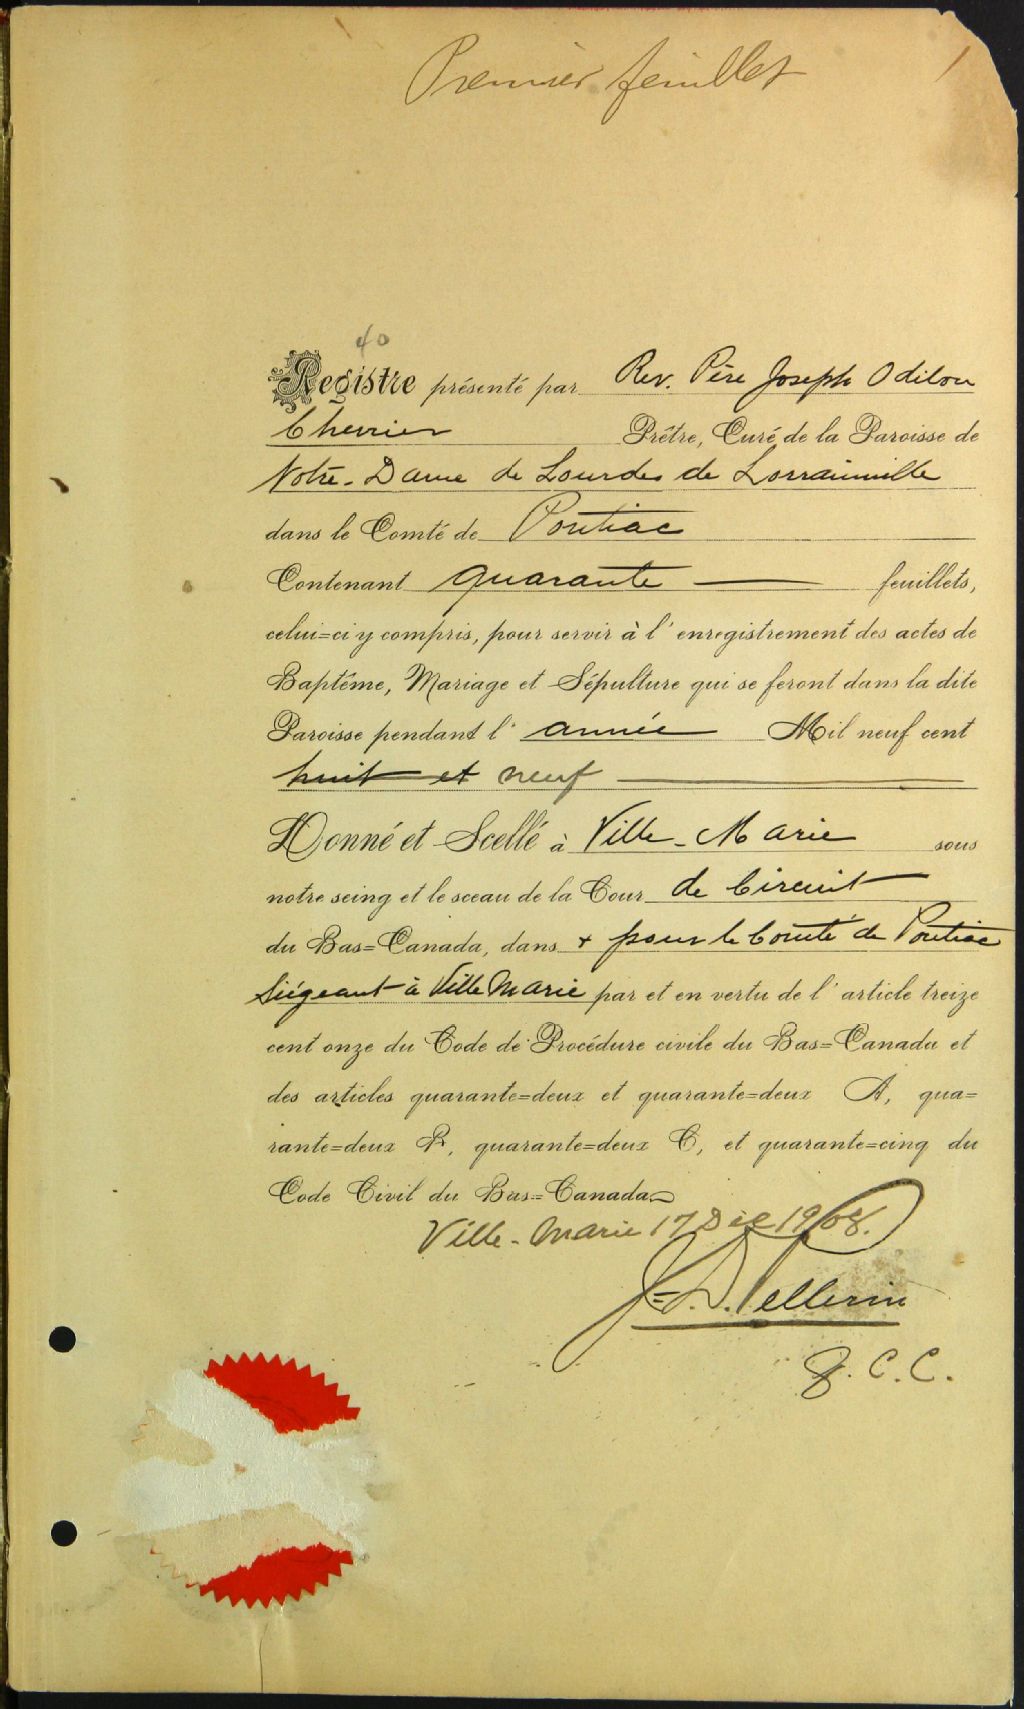 Premier feuillet
1
40
Registre présenté par Rev. Père Joseph Odilon
Chevrier Prêtre, Curé de la Paroisse de
Notre-Dame de Lourdes de Lorrainville
dans le Comté de Pontiac
Contenant quarante feuillets,
celui=ci y compris, pour servir à l'enregistrement des actes de
Baptême, Mariage et Sépulture qui se feront dans la dite
Paroisse pendant l'année Mil neuf cent
huit et neuf
Donné et Scellé à Ville-Marie sous
notre seing et le sceau de la Cour de Circuit
du Bas=Canada, dans + pour le Comté de Pontiac
Siégeant à Ville Marie par et en vertu de l'article treize
cent onze du Code de Procédure civile du Bas=Canada et
des articles quarante=deux et quarante=deux A, qua=
rante=deux B, quarante=deux C, et quarante=cinq du
Code Civil du Bas=Canada
Ville-Marie 17 Déc 1908.
J.-D. Pellerin
g. C. C.